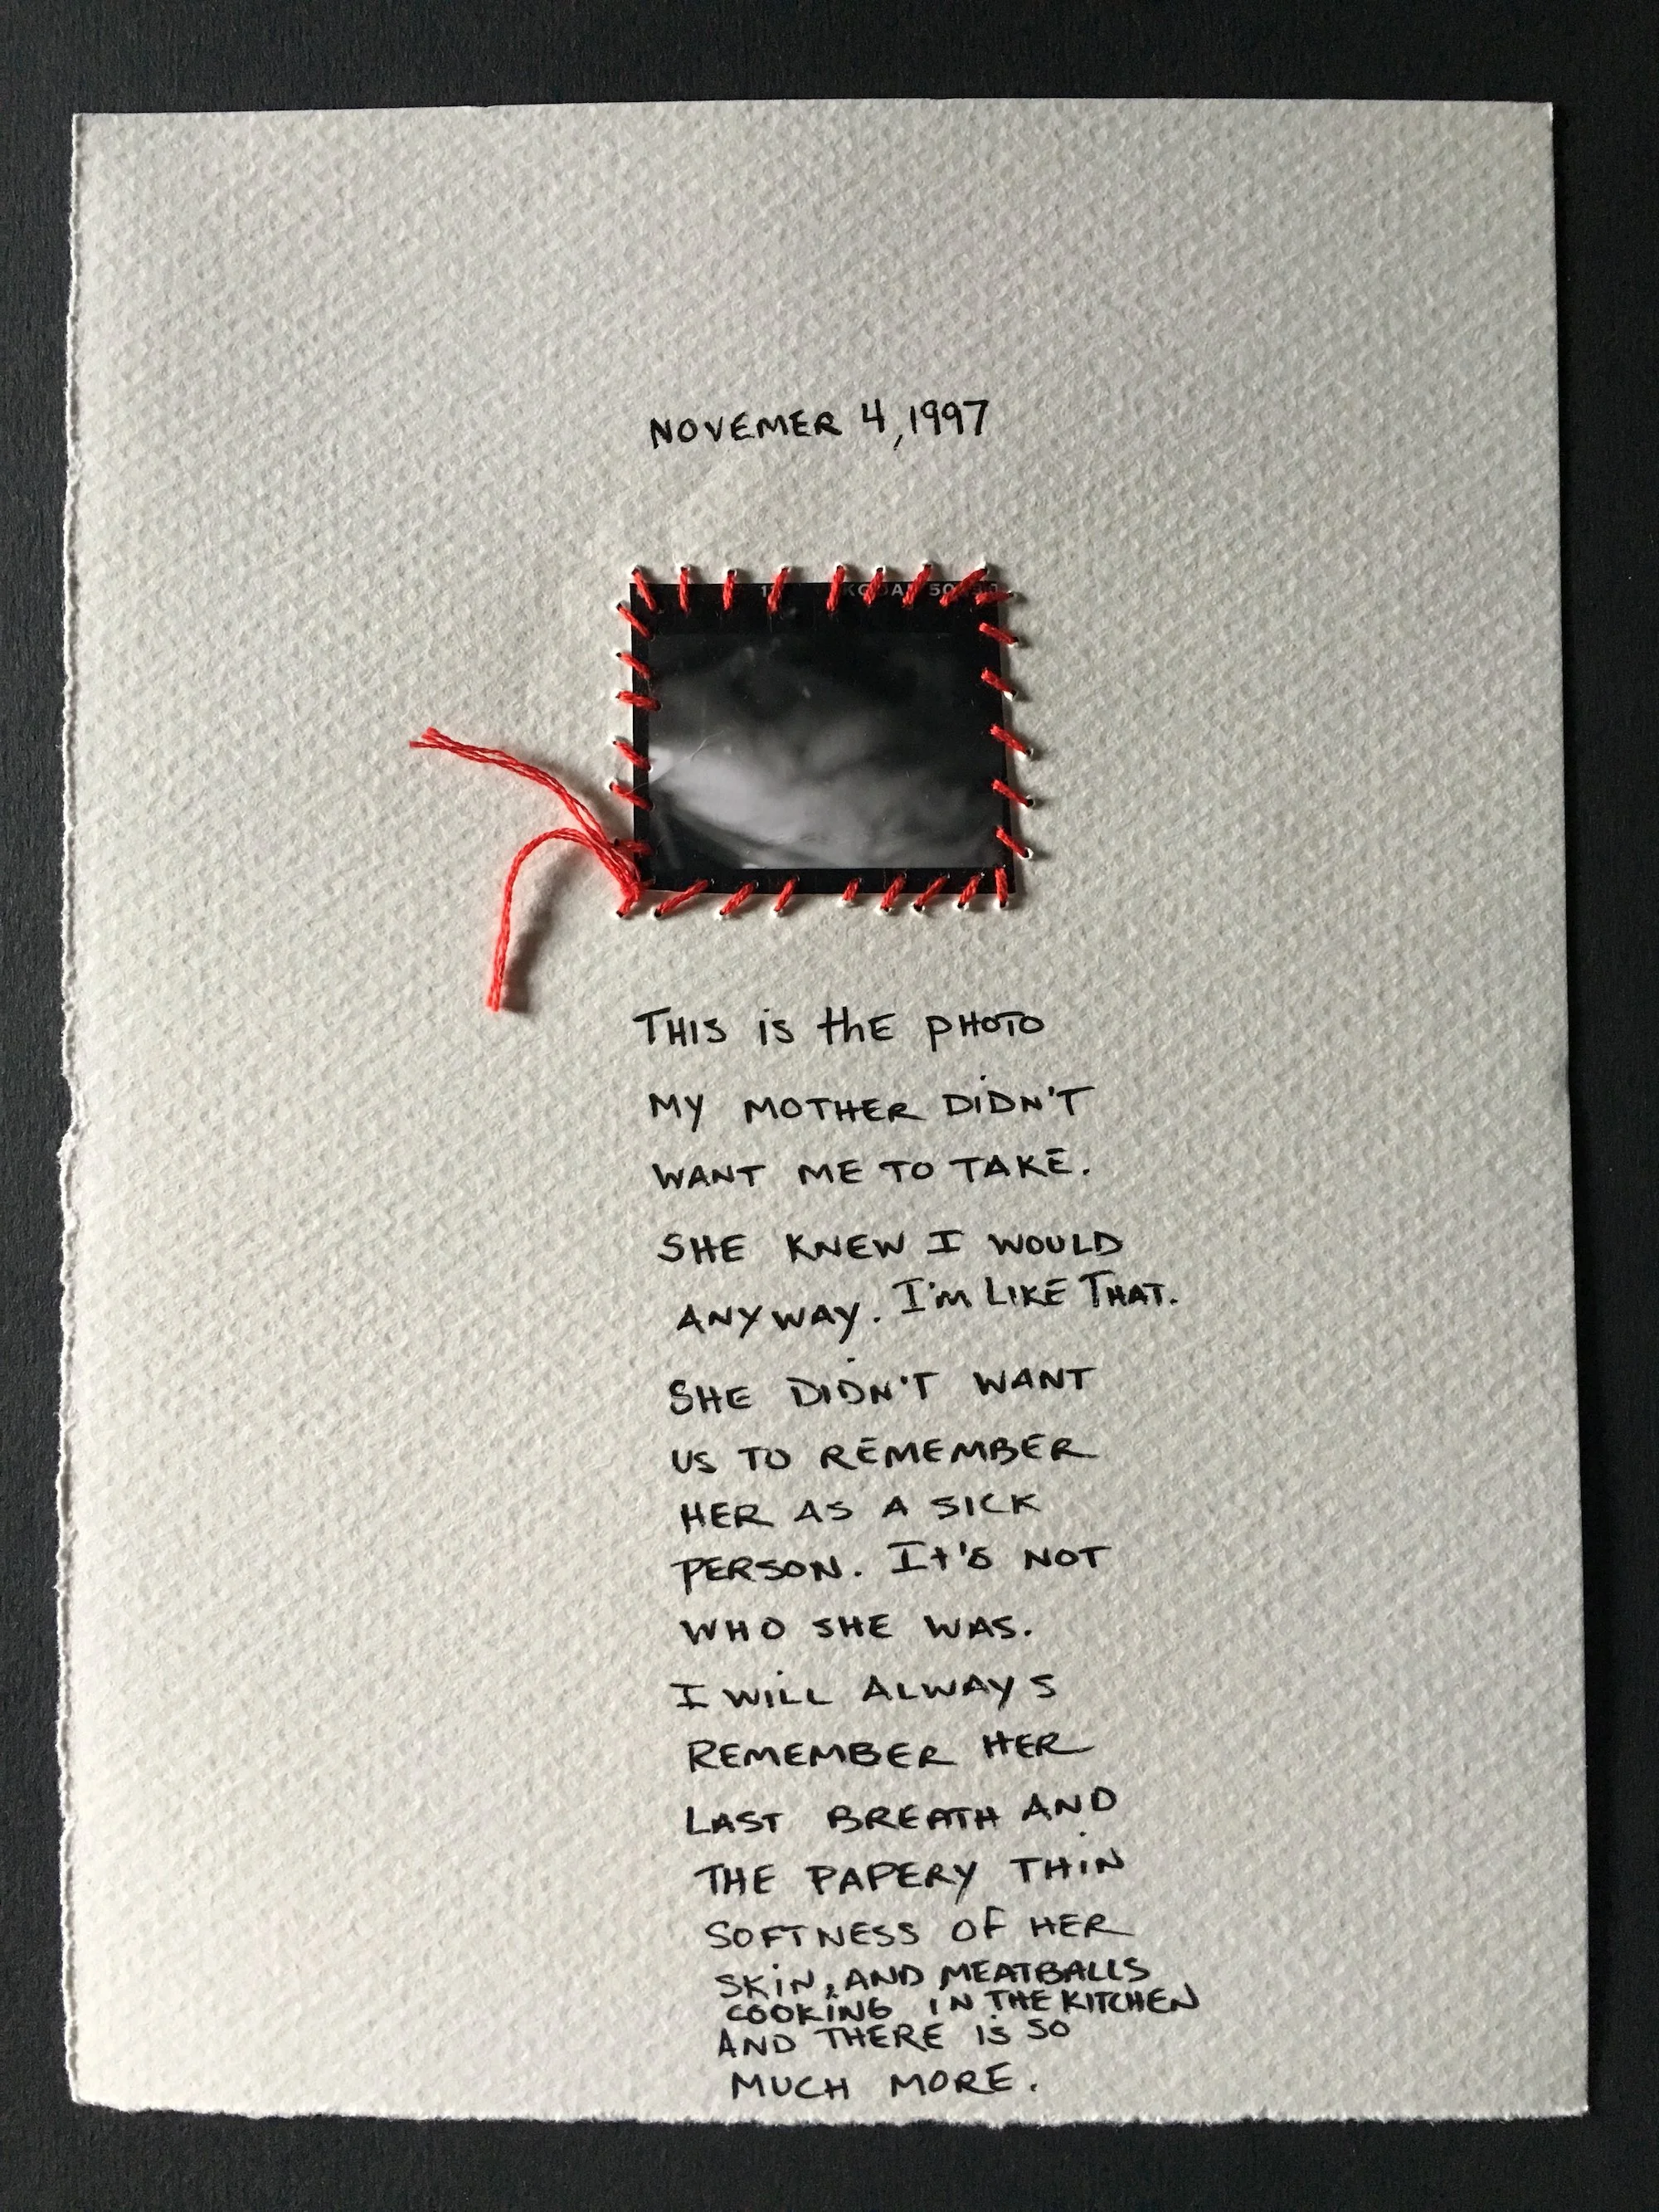 NOVEMER 4, 1997
THIS is thE pHOTO
MY MOTHER DiDN'T
WANT ME TO TAKE.
SHE KNEW I WOULD
ANYWAY. I'm LIKE THAT.
SHE DiDN'T WANT
US TO REMEMBER
HER AS A SICK
PERSON. It's NOT
WHO SHE WAS.
I WiLL ALWAYS
REMEMBER HER
LAST BREATH AND
THE PAPERY THiN
SOFTNESS OF HER
SKiN, AND MEATBALLS
COOKiNG IN THE KITCHEN
AND THERE iS SO
MUCH MORE.